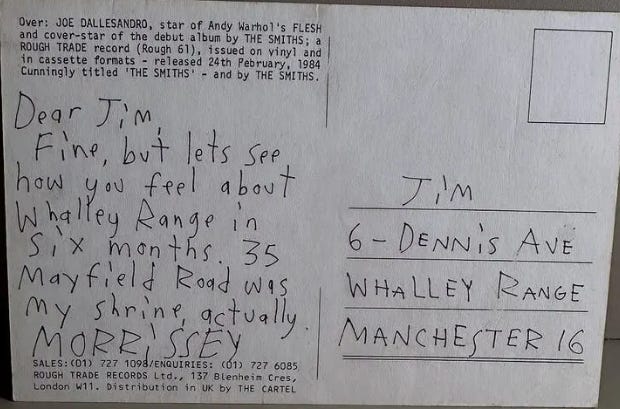 Over: JOE DALLESANDRO, star of Andy Warhol's FLESH
and cover-star of the debut album by THE SMITHS; a
ROUGH TRADE record (Rough 61), issued on vinyl and
in cassette formats - released 24th February, 1984
Cunningly titled 'THE SMITHS' - and by THE SMITHS.
Dear Jim,
Fine, but lets see
how you feel about
Whalley Range in
six months. 35
Mayfield Road was
my shrine, actually.
MORRISSEY
SALES:(01) 727 1098/ENQUIRIES: (01) 727 6085
ROUGH TRADE RECORDS Ltd., 137 Blenheim Cres,
London W11. Distribution in UK by THE CARTEL
JIM
6 - DENNIS AVE
WHALLEY RANGE
MANCHESTER 16